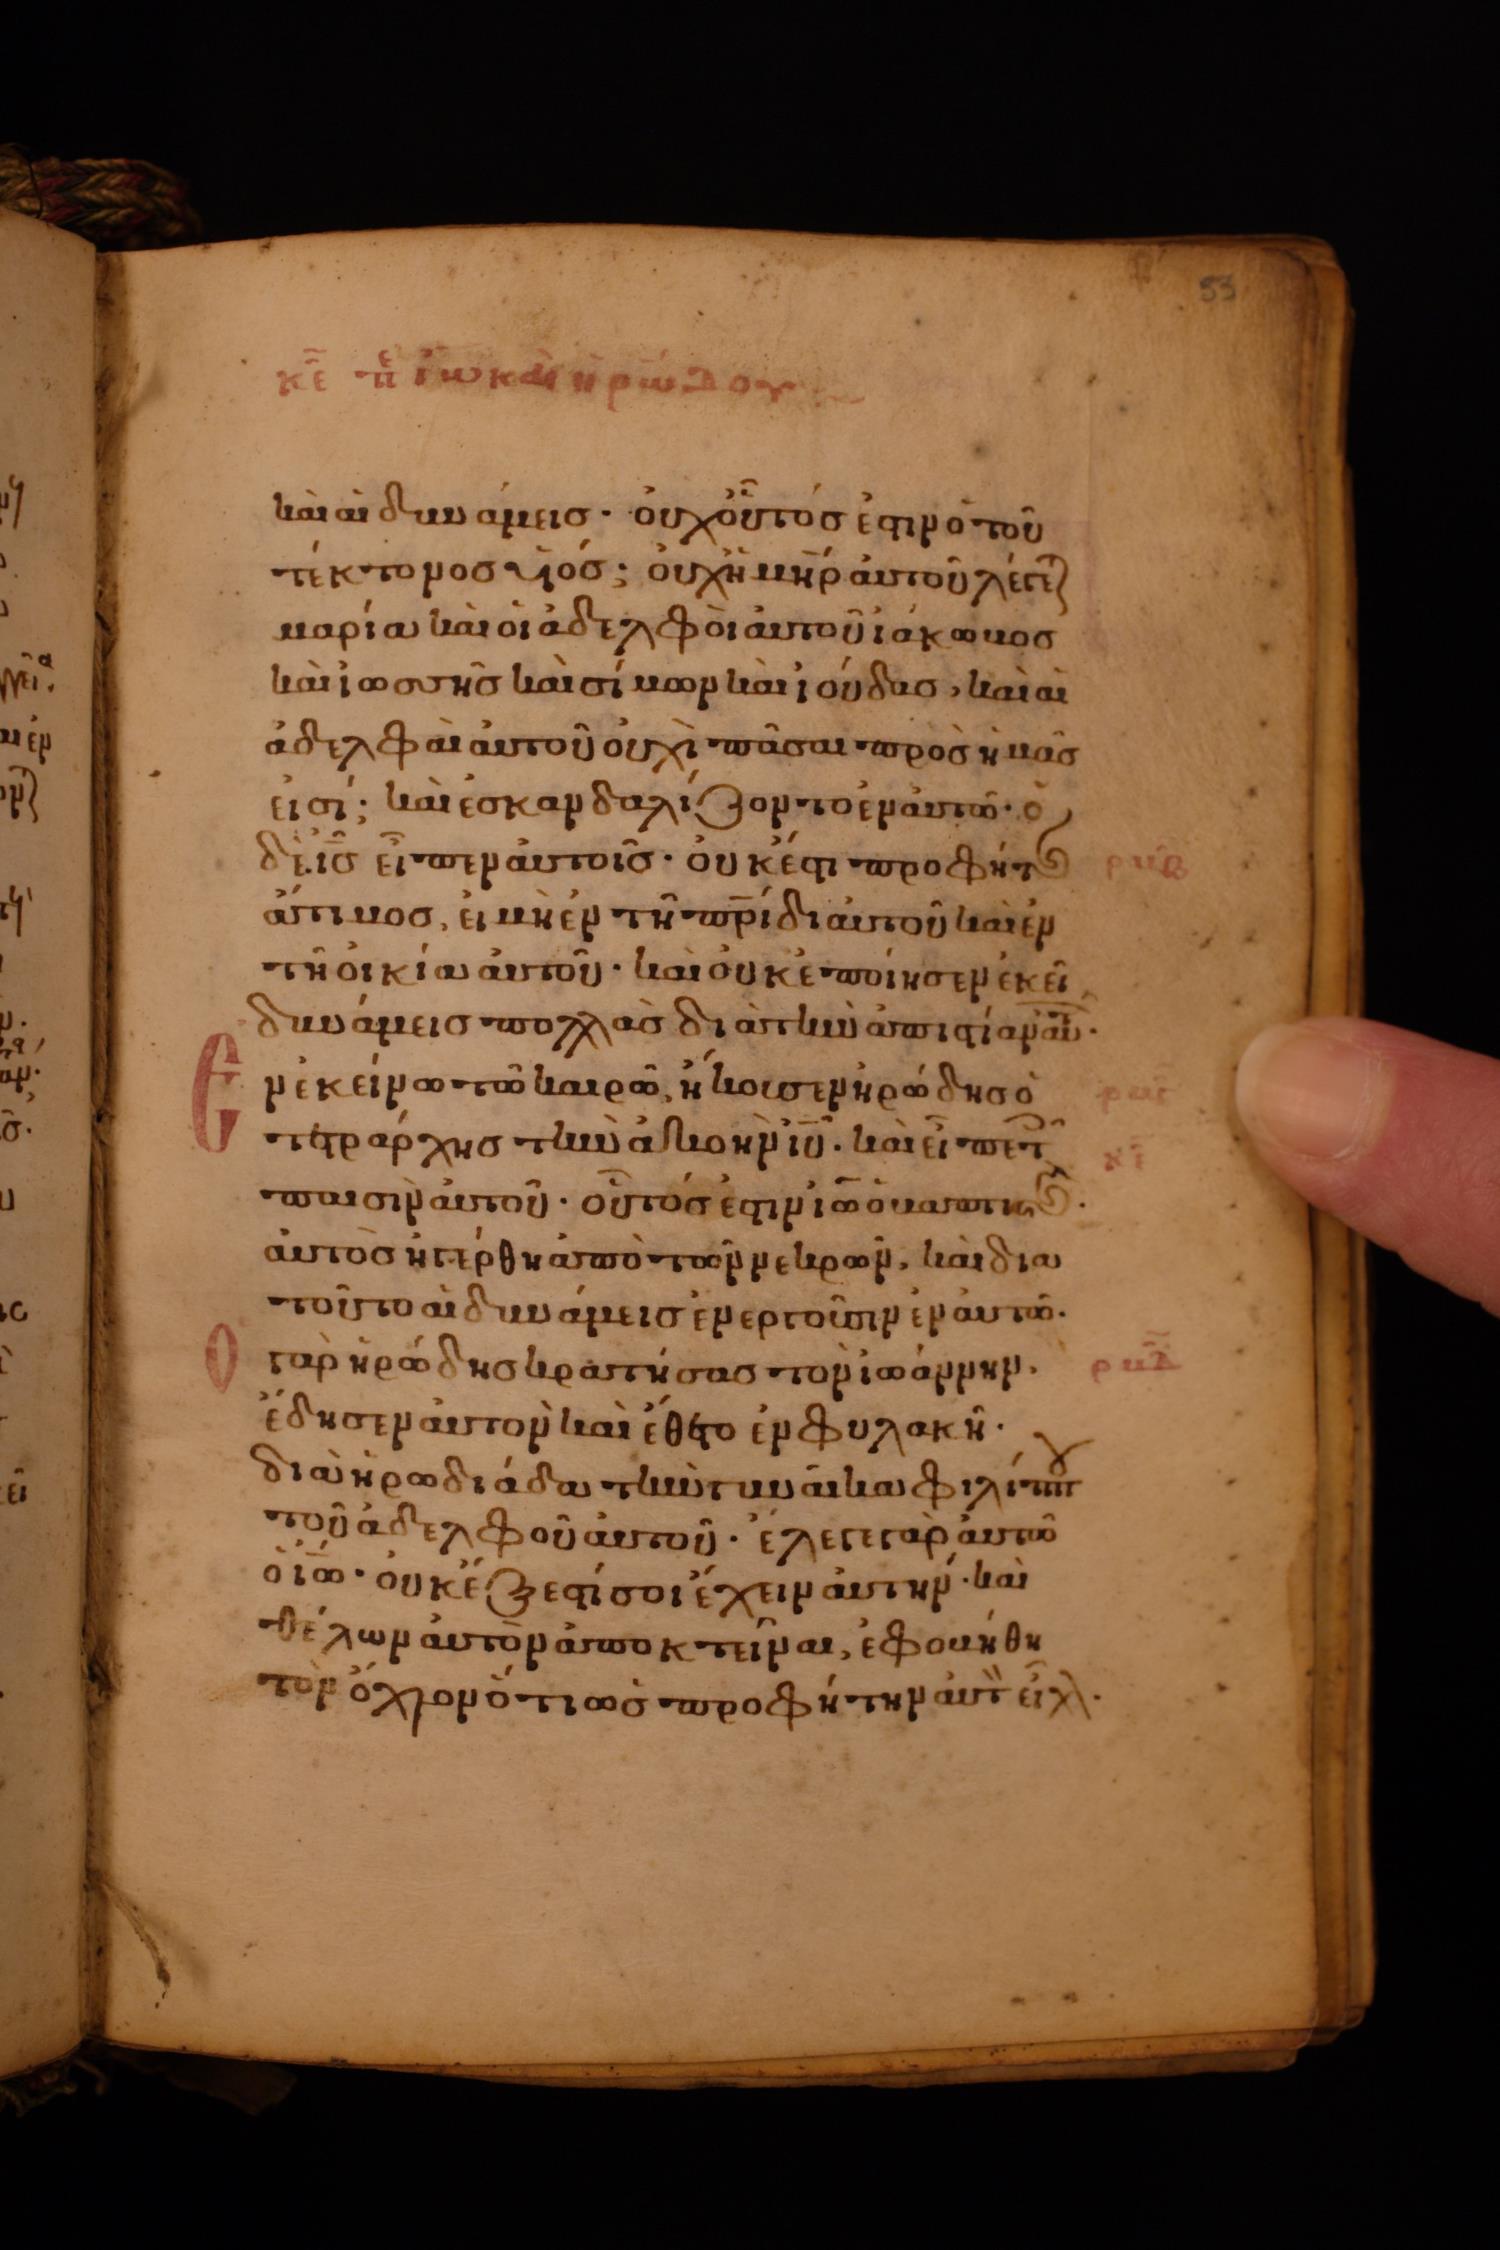 53
κε̄ πε ἰω̄ καὶ ἡρώδου
καὶ αἱ δυνάμεις· οὐχ οὗτός ἐστιν ὁ τοῦ
τέκτονος υἱός; οὐχὶ ἡ μη̄ρ αὐτοῦ λέγετ
μαρία καὶ οἱ ἀδελφοὶ αὐτοῦ ἰάκωμος
καὶ ἰωσσῆς καὶ σίμων καὶ ἰούδας, καὶ αἱ
ἀδελφαὶ αὐτοῦ οὐχὶ πᾶσαι πρὸς ἡμᾶς
εἰσί; καὶ ἐσκανδαλίζοντο ἐν αὐτῶ· ὁ
δὲ ις̄ εἶπεν αὐτοῖς· οὐκ ἔστι προφήτης
ρκβ
ἄτιμος, εἰ μὴ ἐν τῆ πρ̄ίδι αὐτοῦ καὶ ἐν
τῆ οἰκία αὐτοῦ· καὶ οὐκ ἐποίησεν ἐκεῖ
δυνάμεις πολλὰς διὰ τὴν ἀπιστίαν αὐτ·
Ἐν ἐκείνω τῶ καιρῶ, ἤκουσεν ἡρώδης ὁ
ρκγ
τετράρχης τὴν ἀκοὴν ιῡ· καὶ εἶπε τ
κε
παισὶν αὐτοῦ· οὗτός ἐστιν ἰω̄ ὁ βαπτιστης·
αὐτὸς ἠγέρθη ἀπὸ τῶν νεκρῶν, καὶ δια
τοῦτο αἱ δυνάμεις ἐνεργοῦσιν ἐν αὐτῶ·
Ὁ γὰρ ἡρώδης κρατήσας τὸν ἰωάννην,
ρκδ
ἔδησεν αὐτὸν καὶ ἔθετο ἐν φυλακῆ·
διὰ ἡρωδιάδα τὴν γυναῖκα φιλίππου
τοῦ ἀδελφοῦ αὐτοῦ· ἔλεγε γὰρ αὐτῶ
ὁ ἰω̄· οὐκ ἔξεστί σοι ἔχειν αὐτήν· καὶ
θέλων αὐτὸν ἀποκτεῖναι, ἐφοβήθη
τὸν ὄχλον ὅτι ὡς προφήτην αὐτ εἶχ·